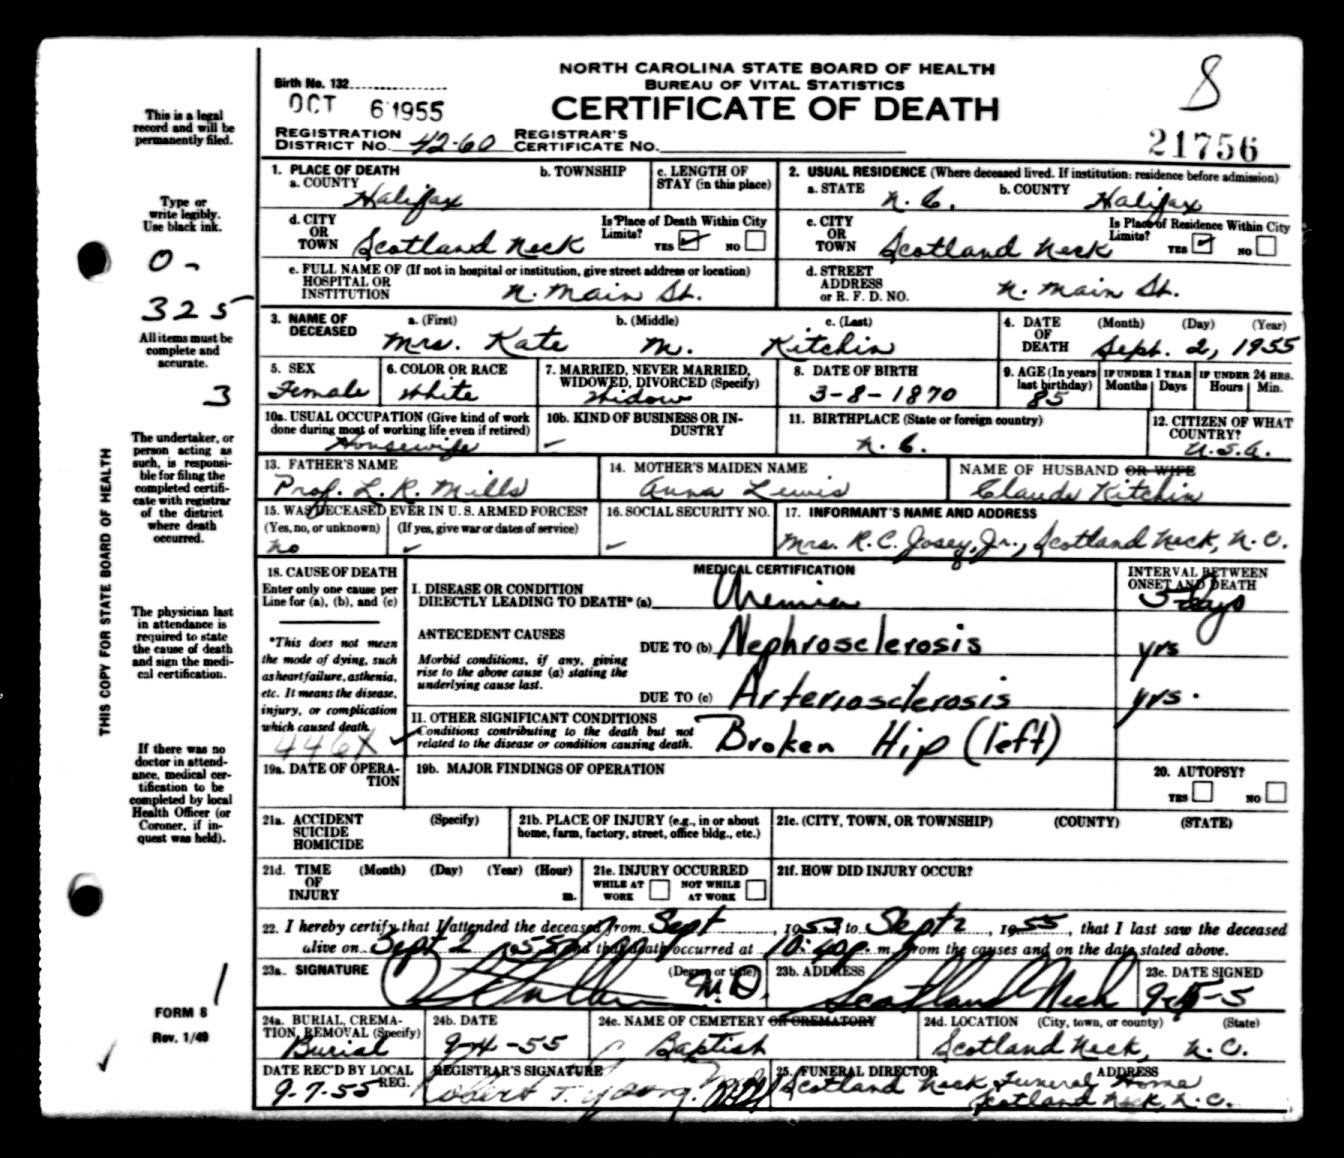 NORTH CAROLINA STATE BOARD OF HEALTH
BUREAU OF VITAL STATISTICS
CERTIFICATE OF DEATH
8
21756
Birth No. 132
OCT 6 1955
REGISTRATION DISTRICT NO. 42-60 REGISTRAR'S CERTIFICATE NO.
This is a legal
record and will be
permanently filed.
Type or
write legibly.
Use black ink.
0-
325
All items must be
complete and
accurate.
3
The undertaker, or
person acting as
such, is responsi-
ble for filing the
completed certifi-
cate with registrar
of the district
where death
occurred.
THIS COPY FOR STATE BOARD OF HEALTH
The physician last
in attendance is
required to state
the cause of death
and sign the medi-
cal certification.
If there was no
doctor in attend-
ance, medical cer-
tification to be
completed by local
Health Officer (or
Coroner, if in-
quest was held).
1
FORM 8
Rev. 1/49
1. PLACE OF DEATH
a. COUNTY Halifax
b. TOWNSHIP
c. LENGTH OF STAY (in this place)
2. USUAL RESIDENCE (Where deceased lived. If institution: residence before admission)
a. STATE N. C. b. COUNTY Halifax
d. CITY OR TOWN Scotland Neck
Is Place of Death Within City Limits? YES ✓ NO
c. CITY OR TOWN Scotland Neck
Is Place of Residence Within City Limits? YES ✓ NO
e. FULL NAME OF (If not in hospital or institution, give street address or location)
HOSPITAL OR INSTITUTION N. Main St.
d. STREET ADDRESS or R. F. D. NO. N. Main St.
3. NAME OF DECEASED
a. (First) b. (Middle) c. (Last)
Mrs. Kate M. Kitchin
4. DATE OF DEATH (Month) (Day) (Year)
Sept. 2, 1955
5. SEX
Female
6. COLOR OR RACE
White
7. MARRIED, NEVER MARRIED, WIDOWED, DIVORCED (Specify)
Widow
8. DATE OF BIRTH
3-8-1870
9. AGE (In years last birthday) 85
IF UNDER 1 YEAR Months Days
IF UNDER 24 HRS. Hours Min.
10a. USUAL OCCUPATION (Give kind of work done during most of working life even if retired)
Housewife
10b. KIND OF BUSINESS OR INDUSTRY
-
11. BIRTHPLACE (State or foreign country)
N. C.
12. CITIZEN OF WHAT COUNTRY?
U.S.A.
13. FATHER'S NAME
Prof. L. R. Mills
14. MOTHER'S MAIDEN NAME
Anna Lewis
NAME OF HUSBAND OR WIFE
Claude Kitchin
15. WAS DECEASED EVER IN U. S. ARMED FORCES?
(Yes, no, or unknown) (If yes, give war or dates of service)
no
16. SOCIAL SECURITY NO.
17. INFORMANT'S NAME AND ADDRESS
Mrs. R. C. Josey, Jr., Scotland Neck, N. C.
18. CAUSE OF DEATH
Enter only one cause per
Line for (a), (b), and (c)
*This does not mean
the mode of dying, such
as heart failure, asthenia,
etc. It means the disease,
injury, or complication
which caused death.
446X
MEDICAL CERTIFICATION
INTERVAL BETWEEN ONSET AND DEATH
I. DISEASE OR CONDITION
DIRECTLY LEADING TO DEATH* (a) Uremia 5 days
ANTECEDENT CAUSES
Morbid conditions, if any, giving
rise to the above cause (a) stating the
underlying cause last.
DUE TO (b) Nephrosclerosis yrs
DUE TO (c) Arteriosclerosis yrs.
II. OTHER SIGNIFICANT CONDITIONS
Conditions contributing to the death but not
related to the disease or condition causing death.
Broken Hip (left)
19a. DATE OF OPERATION
19b. MAJOR FINDINGS OF OPERATION
20. AUTOPSY?
YES NO
21a. ACCIDENT SUICIDE HOMICIDE (Specify)
21b. PLACE OF INJURY (e.g., in or about home, farm, factory, street, office bldg., etc.)
21c. (CITY, TOWN, OR TOWNSHIP) (COUNTY) (STATE)
21d. TIME OF INJURY (Month) (Day) (Year) (Hour) m.
21e. INJURY OCCURRED
WHILE AT WORK NOT WHILE AT WORK
21f. HOW DID INJURY OCCUR?
22. I hereby certify that I attended the deceased from Sept, 1953 to Sept 2, 1955, that I last saw the deceased
alive on Sept 2 1955 and that death occurred at 10:40 p. m., from the causes and on the date stated above.
23a. SIGNATURE (Degree or title) M.D.
23b. ADDRESS
Scotland Neck
23c. DATE SIGNED
24a. BURIAL, CREMATION, REMOVAL (Specify)
Burial
24b. DATE
9-4-55
24c. NAME OF CEMETERY OR CREMATORY
Baptist
24d. LOCATION (City, town, or county) (State)
Scotland Neck, N. C.
DATE REC'D BY LOCAL REG.
9-7-55
REGISTRAR'S SIGNATURE
Robert T. Young
25. FUNERAL DIRECTOR ADDRESS
Scotland Neck Funeral Home
Scotland Neck, N. C.